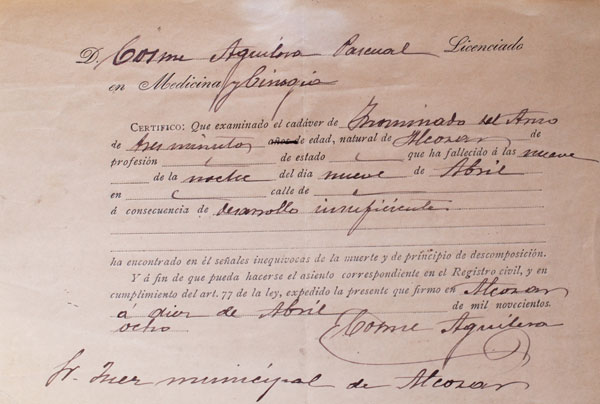 D. Cosme Aguilera Pascual Licenciado
en Medicina y Cirugía
CERTIFICO: Que examinado el cadáver de Inominado del Amo
de tres minutos años de edad, natural de Alcozar de
profesión de estado que ha fallecido á las nueve
de la noche del día nueve de Abril
en calle de
á consecuencia de desarrollo insuficiente
ha encontrado en él señales inequivocas de la muerte y de principio de descomposición.
Y á fin de que pueda hacerse el asiento correspondiente en el Registro civil, y en
cumplimiento del art. 77 de la ley, expedido la presente que firmo en Alcozar
a diez de Abril de mil novecientos
ocho Cosme Aguilera
Sr. Juez municipal de Alcozar